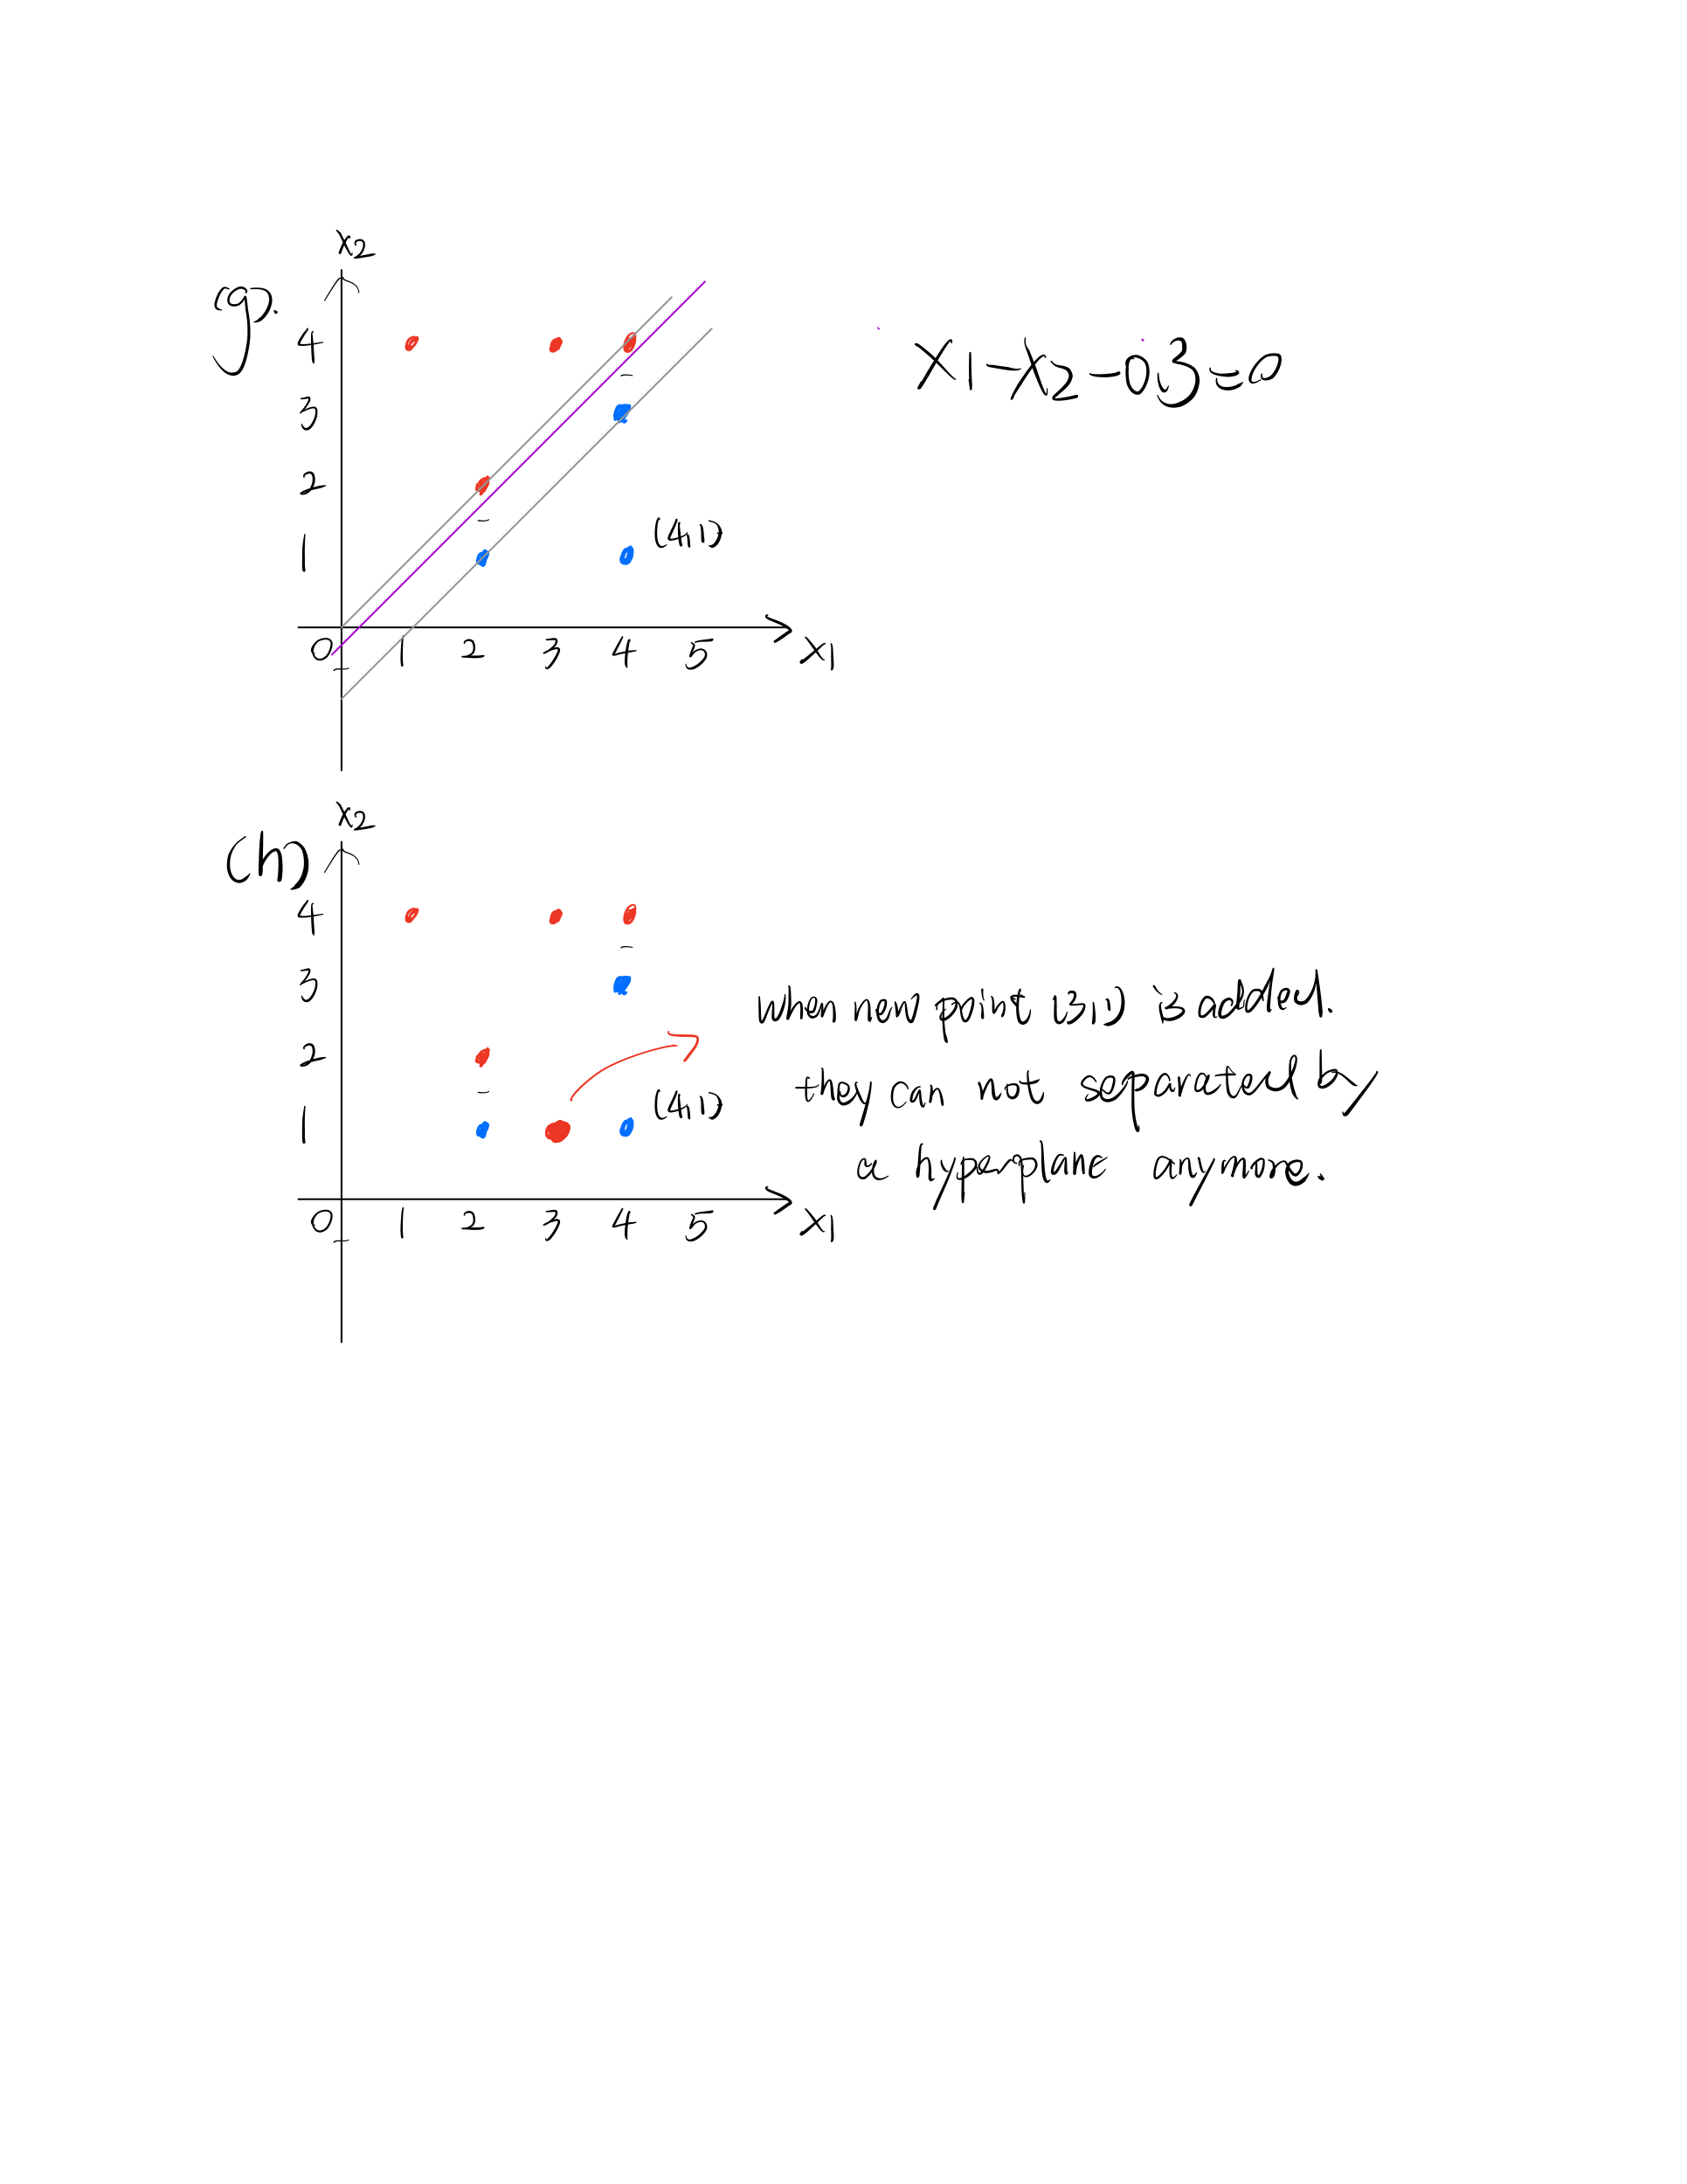 x2
(g).
4
3
2
1
0
1 2 3 4 5 x1
(4,1)
x1-x2-0.3=0
x2
(h)
4
3
2
1
0
1 2 3 4 5 x1
(4,1)
when new point (3,1) is added.
they can not separated by
a hyperplane anymore.